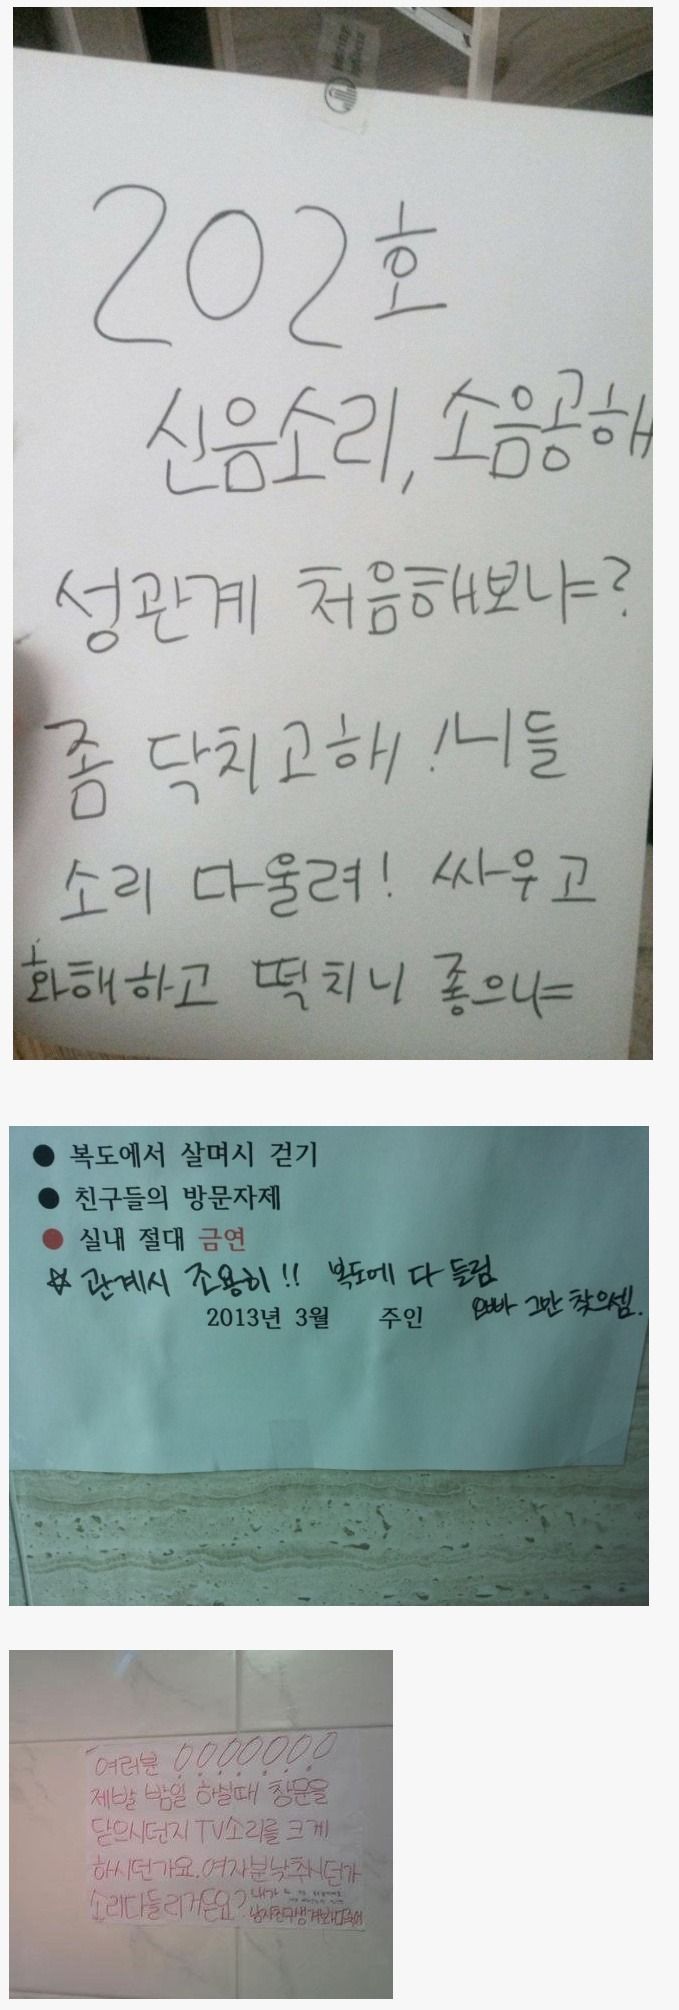 202호
신음소리, 소음공해
성관계 처음해보냐?
좀 닥치고해! 니들
소리 다울려! 싸우고
화해하고 떡치니 좋으냐
● 복도에서 살며시 걷기
● 친구들의 방문자제
● 실내 절대 금연
☆ 관계시 조용히!! 복도에 다 들림
2013년 3월 주인 오빠 그만 찾으셈.
여러분 !!!!!!!
제발 밤일 하실때 창문을
닫으시던지 TV소리를 크게
하시던가요. 여자분낮추시던가
소리다들리거든요? 내가
남자친구생겨봐